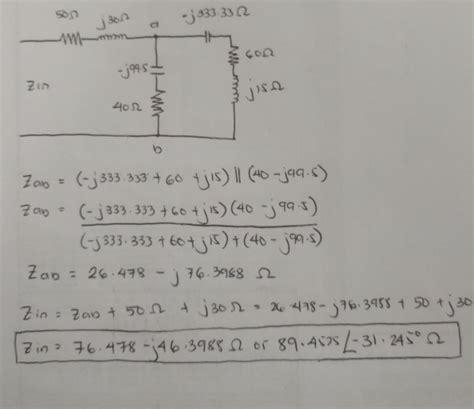 50Ω j30Ω a -j333.33Ω
60Ω
-j99.5
Zin j15Ω
40Ω
b
Zab = (-j333.333 + 60 + j15) || (40 - j99.5)
Zab = (-j333.333 + 60 + j15)(40 - j99.5)
(-j333.333 + 60 + j15) + (40 - j99.5)
Zab = 26.478 - j 76.3988 Ω
Zin = Zab + 50Ω + j30Ω = 26.478 - j76.3988 + 50 + j30
Zin = 76.478 - j46.3988 Ω or 89.4525 ∠-31.245° Ω